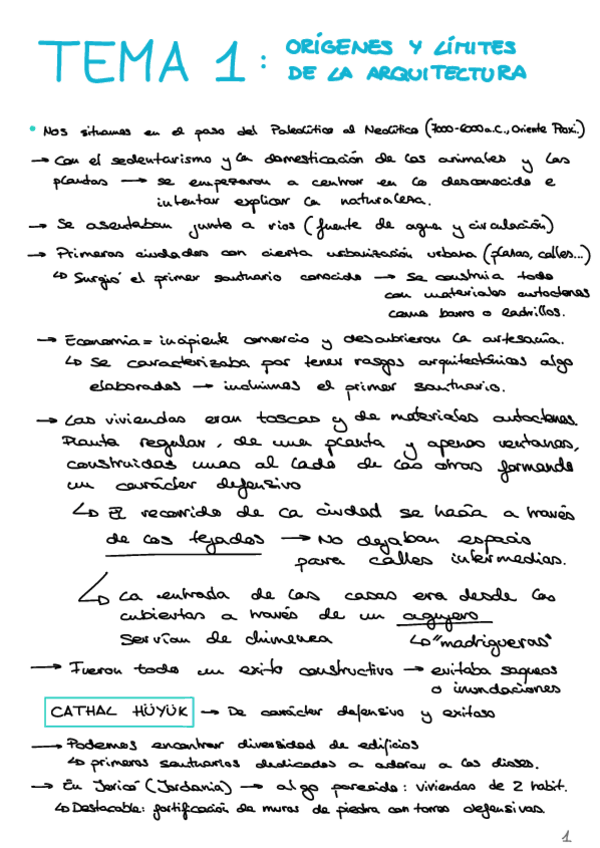 TEMA 1: ORÍGENES Y LÍMITES
DE LA ARQUITECTURA
• Nos situamos en el paso del Paleolítico al Neolítico (7000-6000 a.C., Oriente Próxi.)
→ Con el sedentarismo y la domesticación de los animales y las
plantas → se empezaron a centrar en lo desconocido e
intentar explicar la naturaleza.
→ Se asentaban junto a ríos (fuente de agua y circulación)
→ Primeras ciudades con cierta urbanización urbana (plazas, calles...)
↳ Surgió el primer santuario conocido → Se construía todo
con materiales autóctonos
como barro o ladrillos.
→ Economía = incipiente comercio y descubrieron la artesanía.
↳ Se caracterizaba por tener rasgos arquitectónicos algo
elaborados → incluimos el primer santuario.
→ Las viviendas eran toscas y de materiales autóctonos.
Planta regular, de una planta y apenas ventanas,
construidas unas al lado de las otras formando
un carácter defensivo
↳ El recorrido de la ciudad se hacía a través
de los tejados → No dejaban espacio
para calles intermedias.
↳ La entrada de las casas era desde las
cubiertas a través de un agujero
Servían de chimenea ↳ "madrigueras"
→ Fueron todo un exito constructivo → evitaba saqueos
o inundaciones
CATHAL HÜYÜK → De carácter defensivo y exitoso
→ Podemos encontrar diversidad de edificios
↳ primeros santuarios dedicados a adorar a los dioses.
→ En Jericó (Jordania) → algo parecido: viviendas de 2 habit.
↳ Destacable: fortificación de muros de piedra con torres defensivas.
1